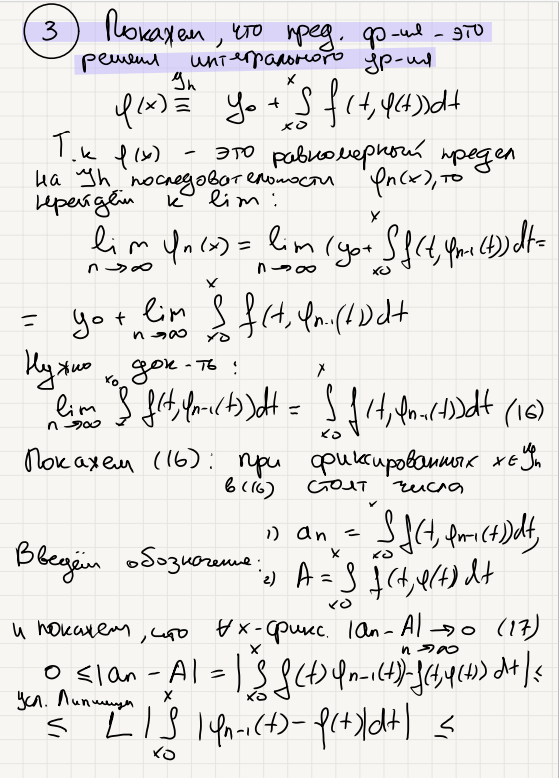 ③ Покажем, что пред. ф-ия - это
решения интегрального ур-ия
φ(x) ≡^{𝒥h} y₀ + ∫_{x₀}^{x} f(t, φ(t))dt
Т.к φ(x) - это равномерный предел
на 𝒥h последовательности φn(x), то
перейдём к lim:
lim_{n→∞} φn(x) = lim_{n→∞} (y₀ + ∫_{x₀}^{x} f(t, φn-1(t))dt =
= y₀ + lim_{n→∞} ∫_{x₀}^{x} f(t, φn-1(t))dt
Нужно док-ть:
lim_{n→∞} ∫_{x}^{x₀} f(t, φn-1(t))dt = ∫_{x₀}^{x} f(t, φn-1(t))dt (16)
Покажем (16): при фиксированных x∈𝒥h
в (16) стоят числа
1) an = ∫_{x₀}^{x} f(t, φn-1(t))dt,
Введём обозначение:
2) A = ∫_{x₀}^{x} f(t, φ(t) dt
и покажем, что ∀x-фикс. |an - A| →_{n→∞} 0 (17)
0 ≤ |an - A| = |∫_{x₀}^{x} f(t) φn-1(t)) - f(t, φ(t)) dt| ≤
усл. Липшица
≤ L |∫_{x₀}^{x} |φn-1(t) - φ(t)|dt| ≤